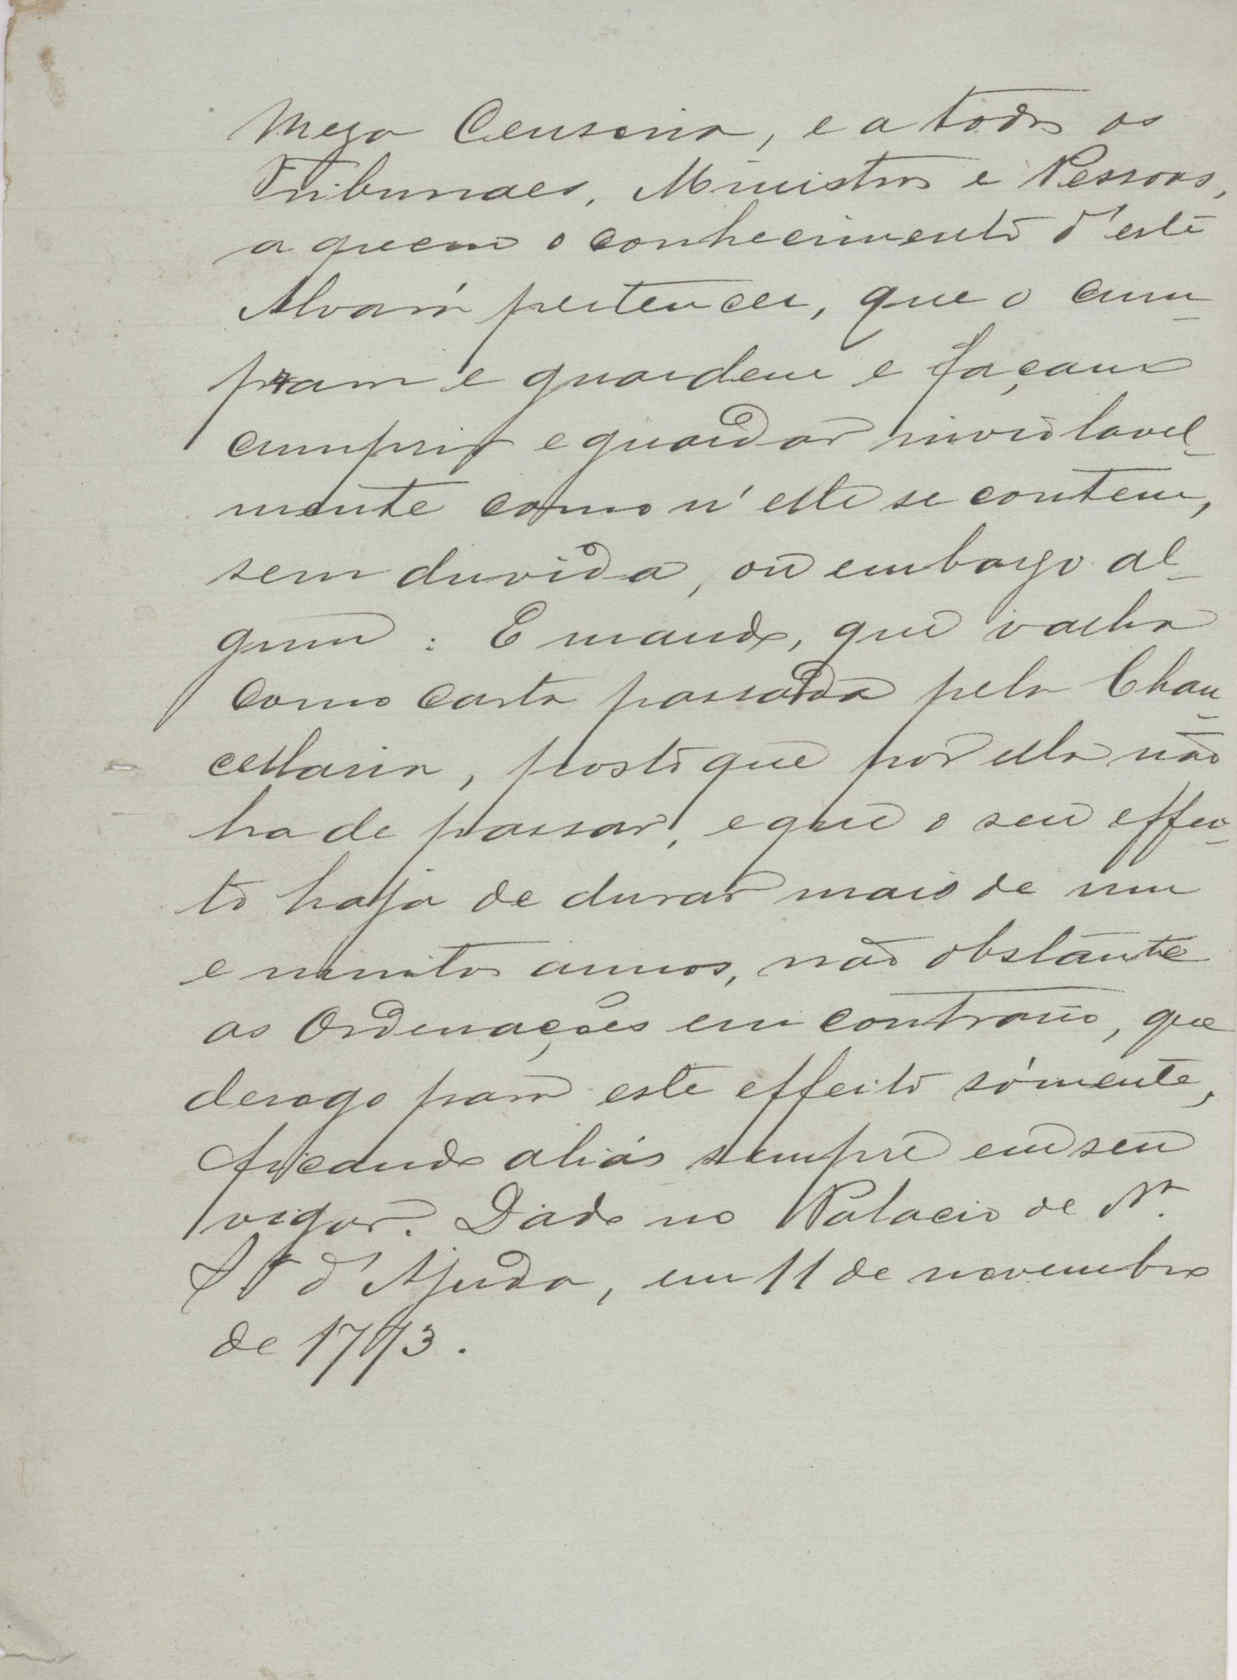 Meza Censoria, e a todos os
Tribunaes, Ministros e Pessoas,
a quem o conhecimento d'este
Alvará pertencer, que o cum-
pram e guardem e façam
cumprir e guardar inviolavel-
mente como n'elle se contem,
sem duvida, ou embargo al-
gum : E mando, que valha
como carta passada pela Chan-
cellaria, posto que por ella não
ha de passar, e que o seu effei-
to haja de durar mais de um
e muitos annos, não obstante
as Ordenações em contrario, que
derogo para este effeito sómente,
ficando aliás sempre em seu
vigor. Dado no Palacio de Nª.
Srª d'Ajuda, em 11 de novembro
de 1773.